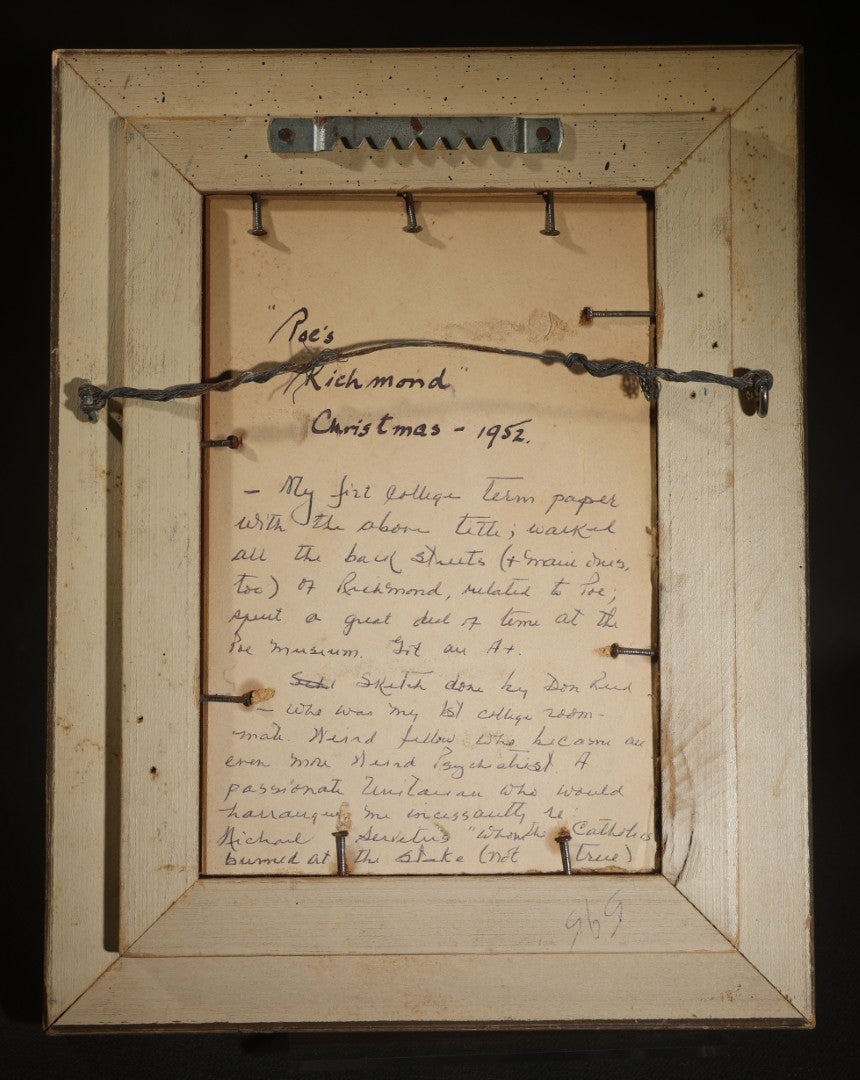 "Poe's
Richmond"
Christmas - 1952.
- My first College term paper
with the above title; walked
all the back streets (+ main ones,
too) of Richmond, related to Poe;
spent a great deal of time at the
Poe Museum. Got an A+.
Sketch done by Don Reed
- who was my 1st college room-
mate. Weird fellow who became an
even more Weird Psychiatrist. A
passionate Unitarian who would
harrangue me incessantly re:
Michael Servetus "whom the Catholics
burned at the stake (not true)